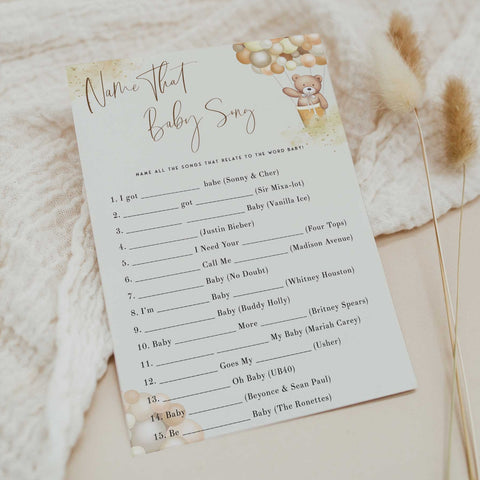 Name That
Baby Song
NAME ALL THE SONGS THAT RELATE TO THE WORD BABY!
1. I got __________ babe (Sonny & Cher)
2. __________ got __________ (Sir Mixa-lot)
3. __________ __________ Baby (Vanilla Ice)
4. __________ (Justin Bieber)
5. __________ I Need Your __________ (Four Tops)
6. __________ Call Me __________ (Madison Avenue)
7. __________ Baby (No Doubt)
8. I'm __________ Baby __________ (Whitney Houston)
9. __________ Baby (Buddy Holly)
10. Baby __________ More __________ (Britney Spears)
11. __________ __________ My Baby (Mariah Carey)
12. __________ Goes My __________ (Usher)
13. __________ Oh Baby (UB40)
14. Baby __________ (Beyonce & Sean Paul)
15. Be __________ Baby (The Ronettes)